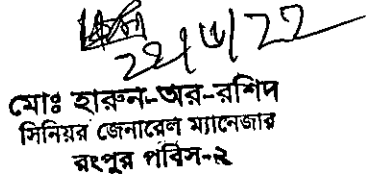 মোঃ হারুন-অর-রশিদ
সিনিয়র জেনারেল ম্যানেজার
রংপুর পবিস-২